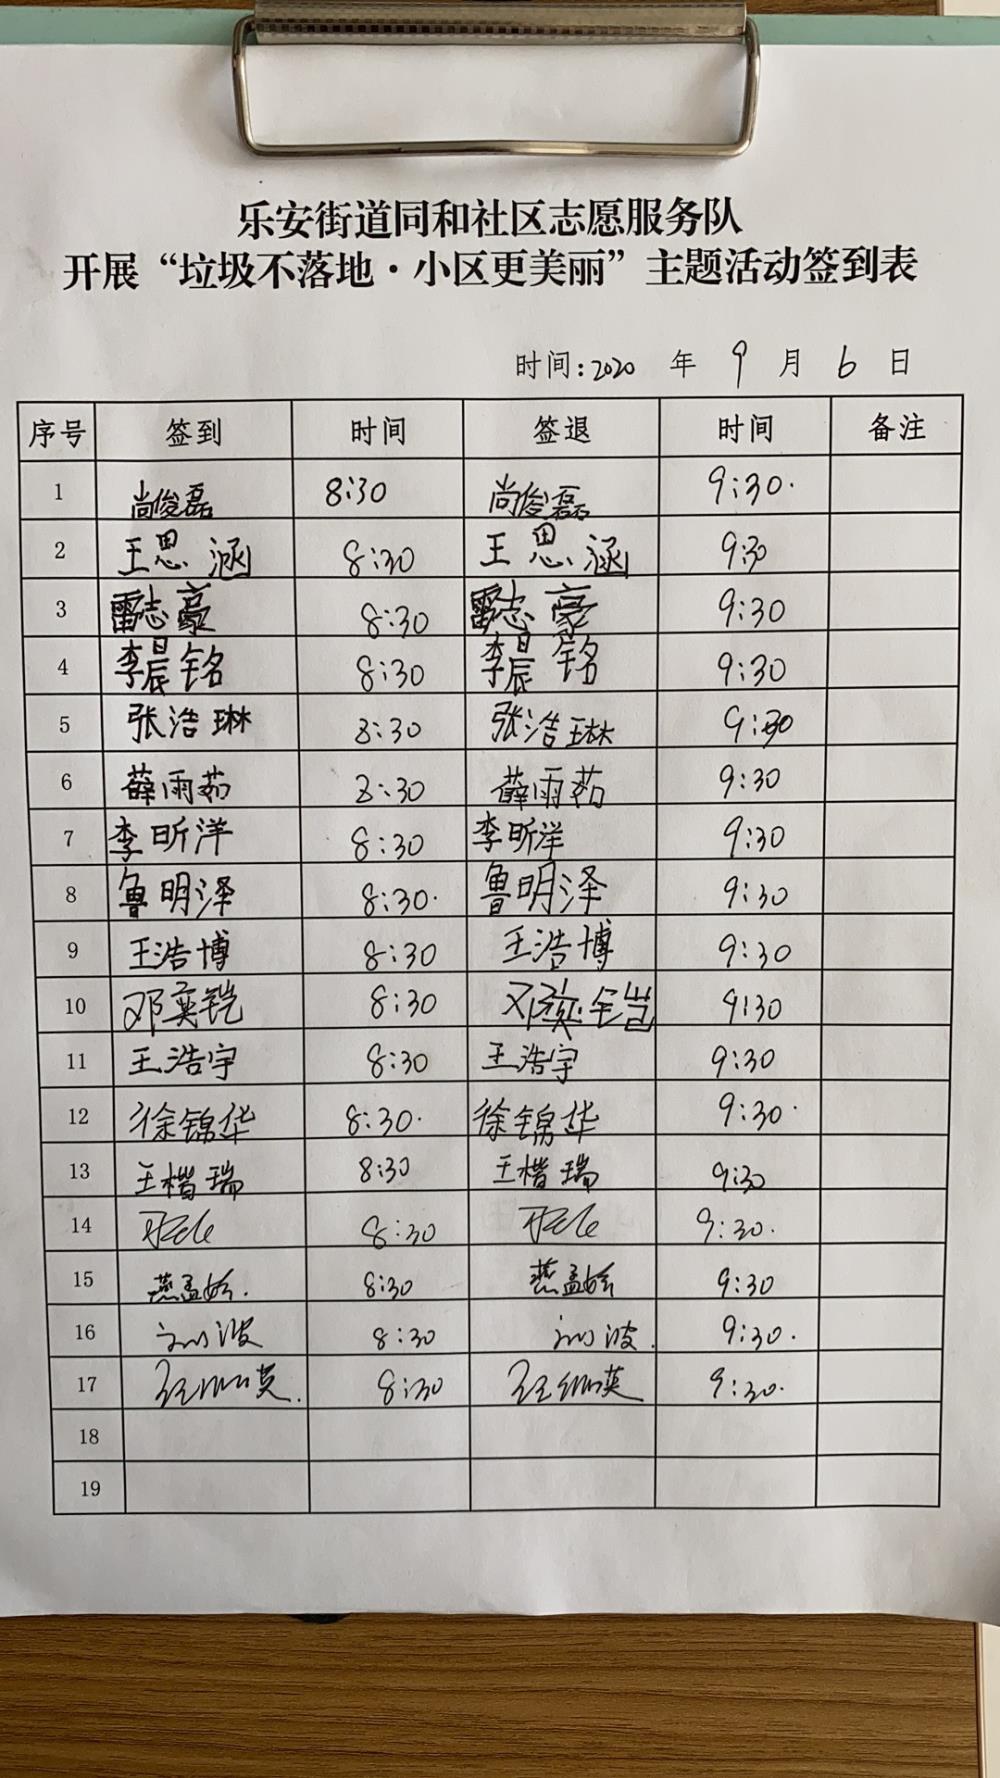 乐安街道同和社区志愿服务队
开展“垃圾不落地·小区更美丽”主题活动签到表
时间:2020 年 9 月 6 日
序号 签到 时间 签退 时间 备注
1 尚俊磊 8:30 尚俊磊 9:30.
2 王思涵 8:30 王思涵 9:30
3 雷志豪 8:30 雷志豪 9:30
4 李晨铭 8:30 李晨铭 9:30
5 张浩琳 8:30 张浩琳 9:30
6 薛雨茹 8:30 薛雨茹 9:30
7 李昕洋 8:30 李昕洋 9:30
8 鲁明泽 8:30. 鲁明泽 9:30
9 王浩博 8:30 王浩博 9:30
10 邓奕铠 8:30 邓奕铠 9:30
11 王浩宇 8:30 王浩宇 9:30
12 徐锦华 8:30. 徐锦华 9:30.
13 王楷瑞 8:30 王楷瑞 9:30
14 8:30 9:30.
15 燕孟 8:30 燕孟 9:30
16 刘波 8:30 刘波. 9:30.
17 英. 8:30 英 9:30.
18
19